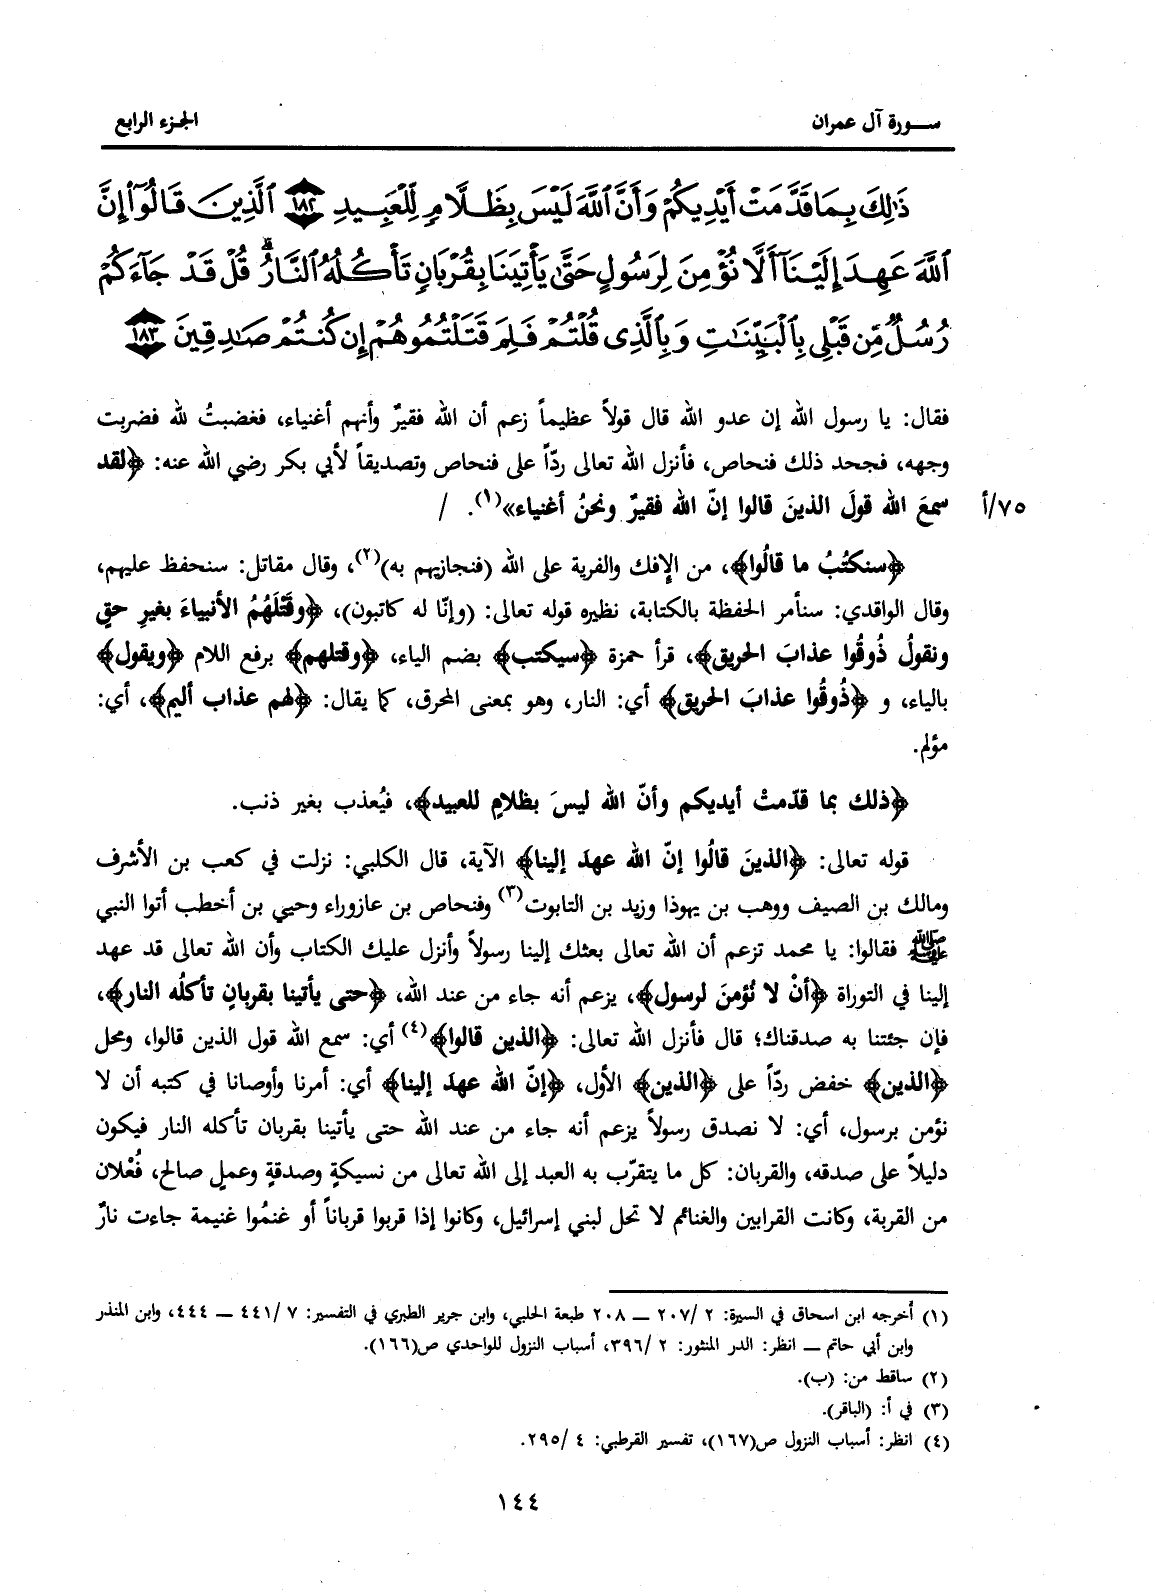 سـورة آل عمران
الجزء الرابع
ذَٰلِكَ بِمَا قَدَّمَتْ أَيْدِيكُمْ وَأَنَّ ٱللَّهَ لَيْسَ بِظَلَّامٍ لِّلْعَبِيدِ ١٨٢ ٱلَّذِينَ قَالُوٓا۟ إِنَّ
ٱللَّهَ عَهِدَ إِلَيْنَآ أَلَّا نُؤْمِنَ لِرَسُولٍ حَتَّىٰ يَأْتِيَنَا بِقُرْبَانٍ تَأْكُلُهُ ٱلنَّارُ ۗ قُلْ قَدْ جَآءَكُمْ
رُسُلٌ مِّن قَبْلِى بِٱلْبَيِّنَٰتِ وَبِٱلَّذِى قُلْتُمْ فَلِمَ قَتَلْتُمُوهُمْ إِن كُنتُمْ صَٰدِقِينَ ١٨٣
فقال: يا رسول الله إن عدو الله قال قولاً عظيماً زعم أن الله فقيرٌ وأنهم أغنياء، فغضبتُ لله فضربت
وجهه، فجحد ذلك فنحاص، فأنزل الله تعالى ردّاً على فنحاص وتصديقاً لأبي بكر رضي الله عنه: ﴿لقد
سمعَ الله قولَ الذينَ قالوا إنّ الله فقيرٌ ونحنُ أغنياء»(١). /
٧٥/أ
﴿سنكتُبُ ما قالُوا﴾، من الإفك والفرية على الله (فنجازيهم به)(٢)، وقال مقاتل: سنحفظ عليهم،
وقال الواقدي: سنأمر الحفظة بالكتابة، نظيره قوله تعالى: (وإنّا له كاتبون)، ﴿وقتْلَهُمُ الأنبياءَ بغيرِ حقٍ
ونقولُ ذُوقُوا عذابَ الحريق﴾، قرأ حمزة ﴿سيكتب﴾ بضم الياء، ﴿وقتلهم﴾ برفع اللام ﴿ويقول﴾
بالياء، و ﴿ذُوقُوا عذابَ الحريق﴾ أي: النار، وهو بمعنى المحرق، كما يقال: ﴿لهم عذاب أليم﴾، أي:
مؤلم.
﴿ذلك بما قدّمتْ أيديكم وأنّ الله ليسَ بظلامٍ للعبيد﴾، فيُعذب بغير ذنب.
قوله تعالى: ﴿الذينَ قالُوا إنّ الله عهدَ إلينا﴾ الآية، قال الكلبي: نزلت في كعب بن الأشرف
ومالك بن الصيف ووهب بن يهوذا وزيد بن التابوت(٣) وفنحاص بن عازوراء وحيي بن أخطب أتوا النبي
ﷺ فقالوا: يا محمد تزعم أن الله تعالى بعثك إلينا رسولاً وأنزل عليك الكتاب وأن الله تعالى قد عهد
إلينا في التوراة ﴿أنْ لا نُؤمنَ لرسول﴾، يزعم أنه جاء من عند الله، ﴿حتى يأتينا بقربانٍ تأكلُه النار﴾،
فإن جئتنا به صدقناك؛ قال فأنزل الله تعالى: ﴿الذين قالوا﴾(٤) أي: سمع الله قول الذين قالوا، ومحل
﴿الذين﴾ خفض ردّاً على ﴿الذين﴾ الأول، ﴿إنّ الله عهدَ إلينا﴾ أي: أمرنا وأوصانا في كتبه أن لا
نؤمن برسول، أي: لا نصدق رسولاً يزعم أنه جاء من عند الله حتى يأتينا بقربان تأكله النار فيكون
دليلاً على صدقه، والقربان: كل ما يتقرّب به العبد إلى الله تعالى من نسيكةٍ وصدقةٍ وعملٍ صالح، فُعْلان
من القربة، وكانت القرابين والغنائم لا تحل لبني إسرائيل، وكانوا إذا قربوا قرباناً أو غنمُوا غنيمة جاءت نارٌ
(١) أخرجه ابن اسحاق في السيرة: ٢ /٢٠٧ ــ ٢٠٨ طبعة الحلبي، وابن جرير الطبري في التفسير: ٧ /٤٤١ ــ ٤٤٤، وابن المنذر
وابن أبي حاتم ــ انظر: الدر المنثور: ٢ /٣٩٦، أسباب النزول للواحدي ص(١٦٦).
(٢) ساقط من: (ب).
(٣) في أ: (الباقر).
(٤) انظر: أسباب النزول ص(١٦٧)، تفسير القرطبي: ٤ /٢٩٥.
١٤٤